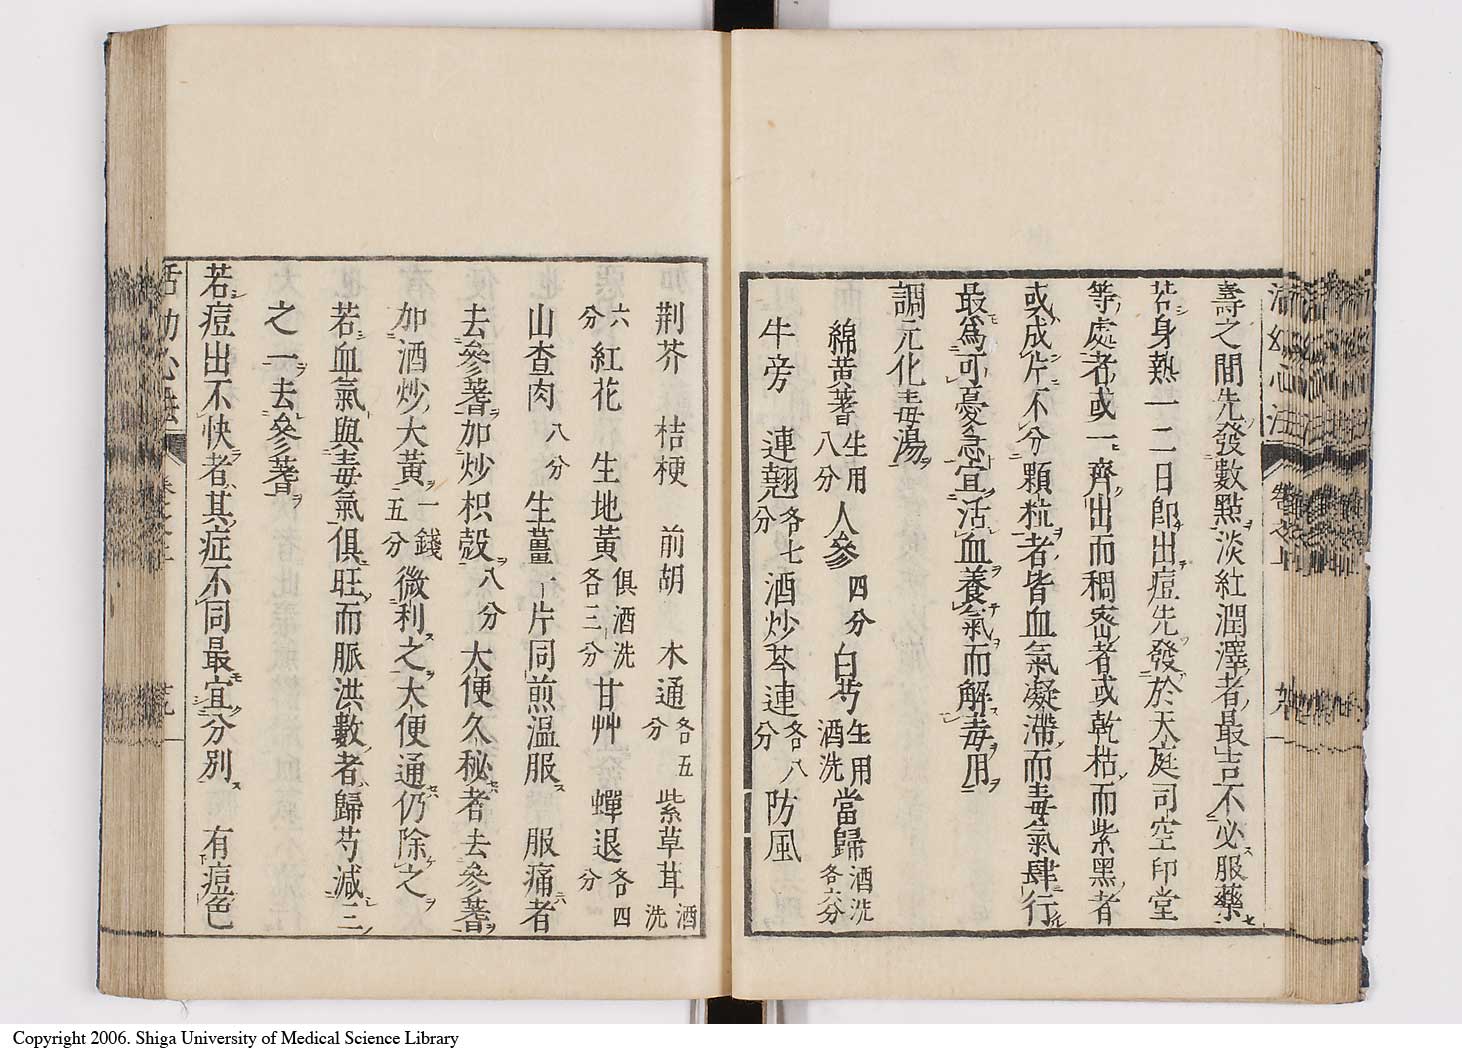 壽之間先發數點淡紅潤澤者最吉不必服藥
若身熱一二日卽出痘先發於天庭司空印堂
等處者或一齊出而稠密者或乾枯而紫黑者
或成片不分顆粒者皆血氣凝滯而毒氣肆行
最爲可憂急宜活血養氣而解毒用
調元化毒湯
綿黃蓍生用八分 人參四分 白芍生用酒洗 當歸酒洗各六分
牛旁 連翹各七分 酒炒芩連各八分 防風
荆芥 桔梗 前胡 木通各五分 紫草茸酒洗
六分 紅花 生地黃俱酒洗各三分 甘艸 蟬退各四分
山查肉八分 生薑一片同煎溫服 服痛者
去參蓍加炒枳殼八分 大便久秘者去參蓍
加酒炒大黃一錢五分 微利之大便通仍除之
若血氣與毒氣俱旺而脈洪數者歸芍減三
之一去參蓍
若痘出不快者其症不同最宜分別 有痘色
活幼心法
Copyright 2006. Shiga University of Medical Science Library